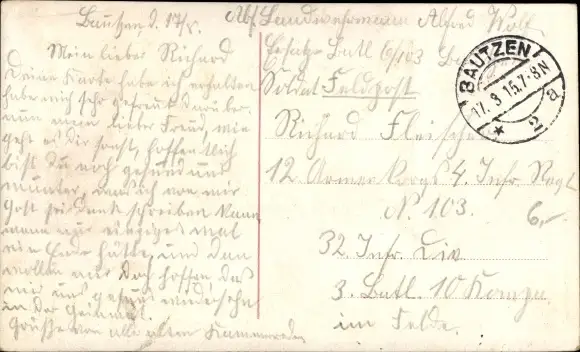 Bautzen d. 17/8.
Mein lieber Richard
Deine Karte habe ich erhalten
habe mich sehr gefreut darüber.
nun mein lieber Freud, wie
geht es dir sonst, hoffentlich
bist Du noch gesund und
munter, was ich von mir
Gott sei dank schreiben kann
wenn nur mal
ein Ende hätte, und dan
wollen wir doch hoffen, daß
wir uns gesund wiedersehn
in der Heimat.
Grüße von alle alten Kammeraden
Abs Landwehrmann Alfred
Ersatz Batl 6/103
Soldat Feldpost
BAUTZEN
17.8.15.7-8N
* 2 a
Richard Fleischer
12 Armee Korps 4. Inf Regt
N. 103.
6,-
32 Inf. Div
3. Batl 10 Komp.
im Felde.